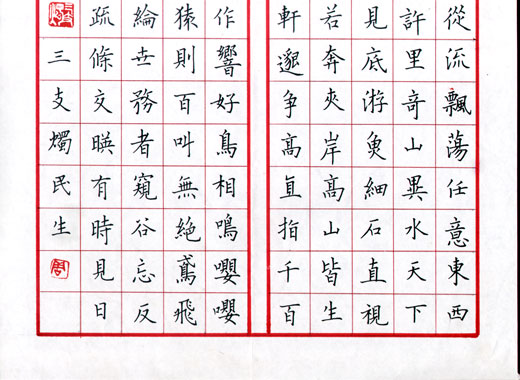 從流飄蕩任意東西
許里竒山異水天下
見底游魚細石直視
若奔夾岸髙山皆生
軒邈争髙直指千百
作響好鳥相鳴嚶嚶
猿則百叫無絕鳶飛
綸世務者窺谷忘反
疏條交暎有時見日
三支燭民生